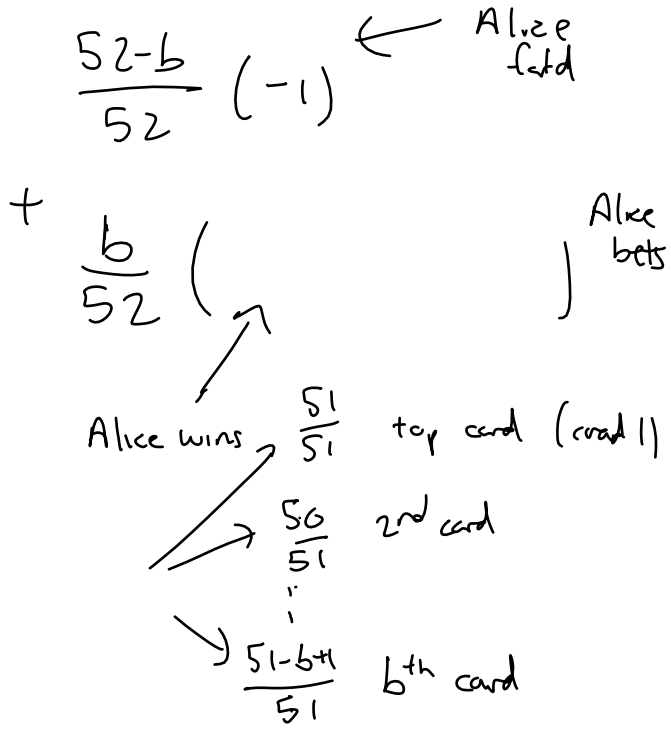 52-b / 52 (-1) ← Alice fold
+ b / 52 ( ) Alice bets
Alice wins 51/51 top card (card 1)
50/51 2nd card
⋮
51-b+1 / 51 bth card